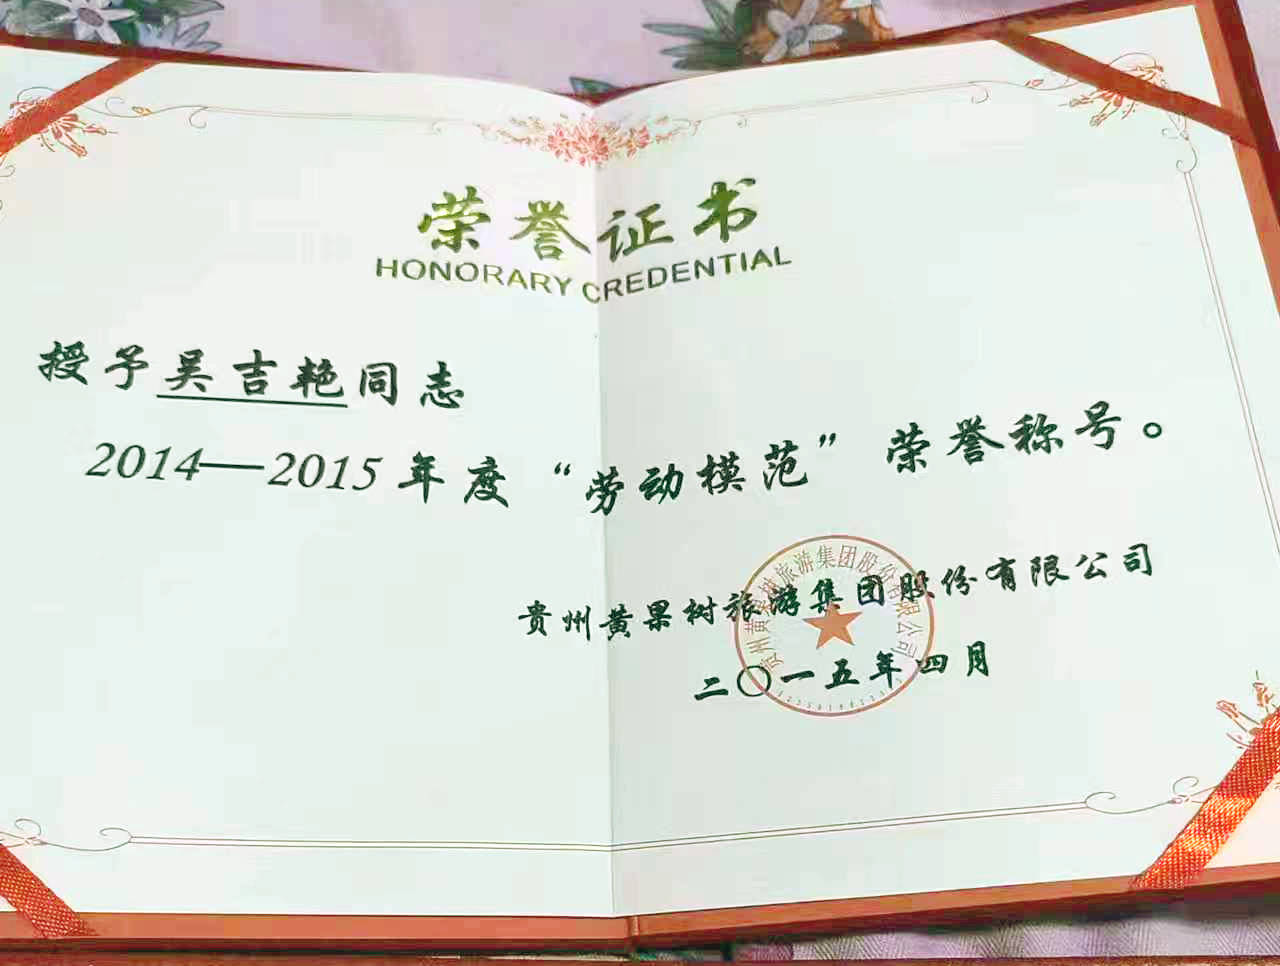 荣誉证书
HONORARY CREDENTIAL
授予吴吉艳同志
2014—2015年度“劳动模范”荣誉称号。
贵州黄果树旅游集团股份有限公司
二〇一五年四月
贵州黄果树旅游集团股份有限公司